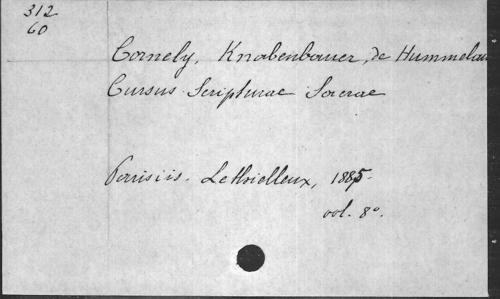 312
60
Cornely, Knabenbauer, de Hummelau
Cursus Scripturae Sacrae
Parisiis. Lethielleux, 1885-
vol. 8º.